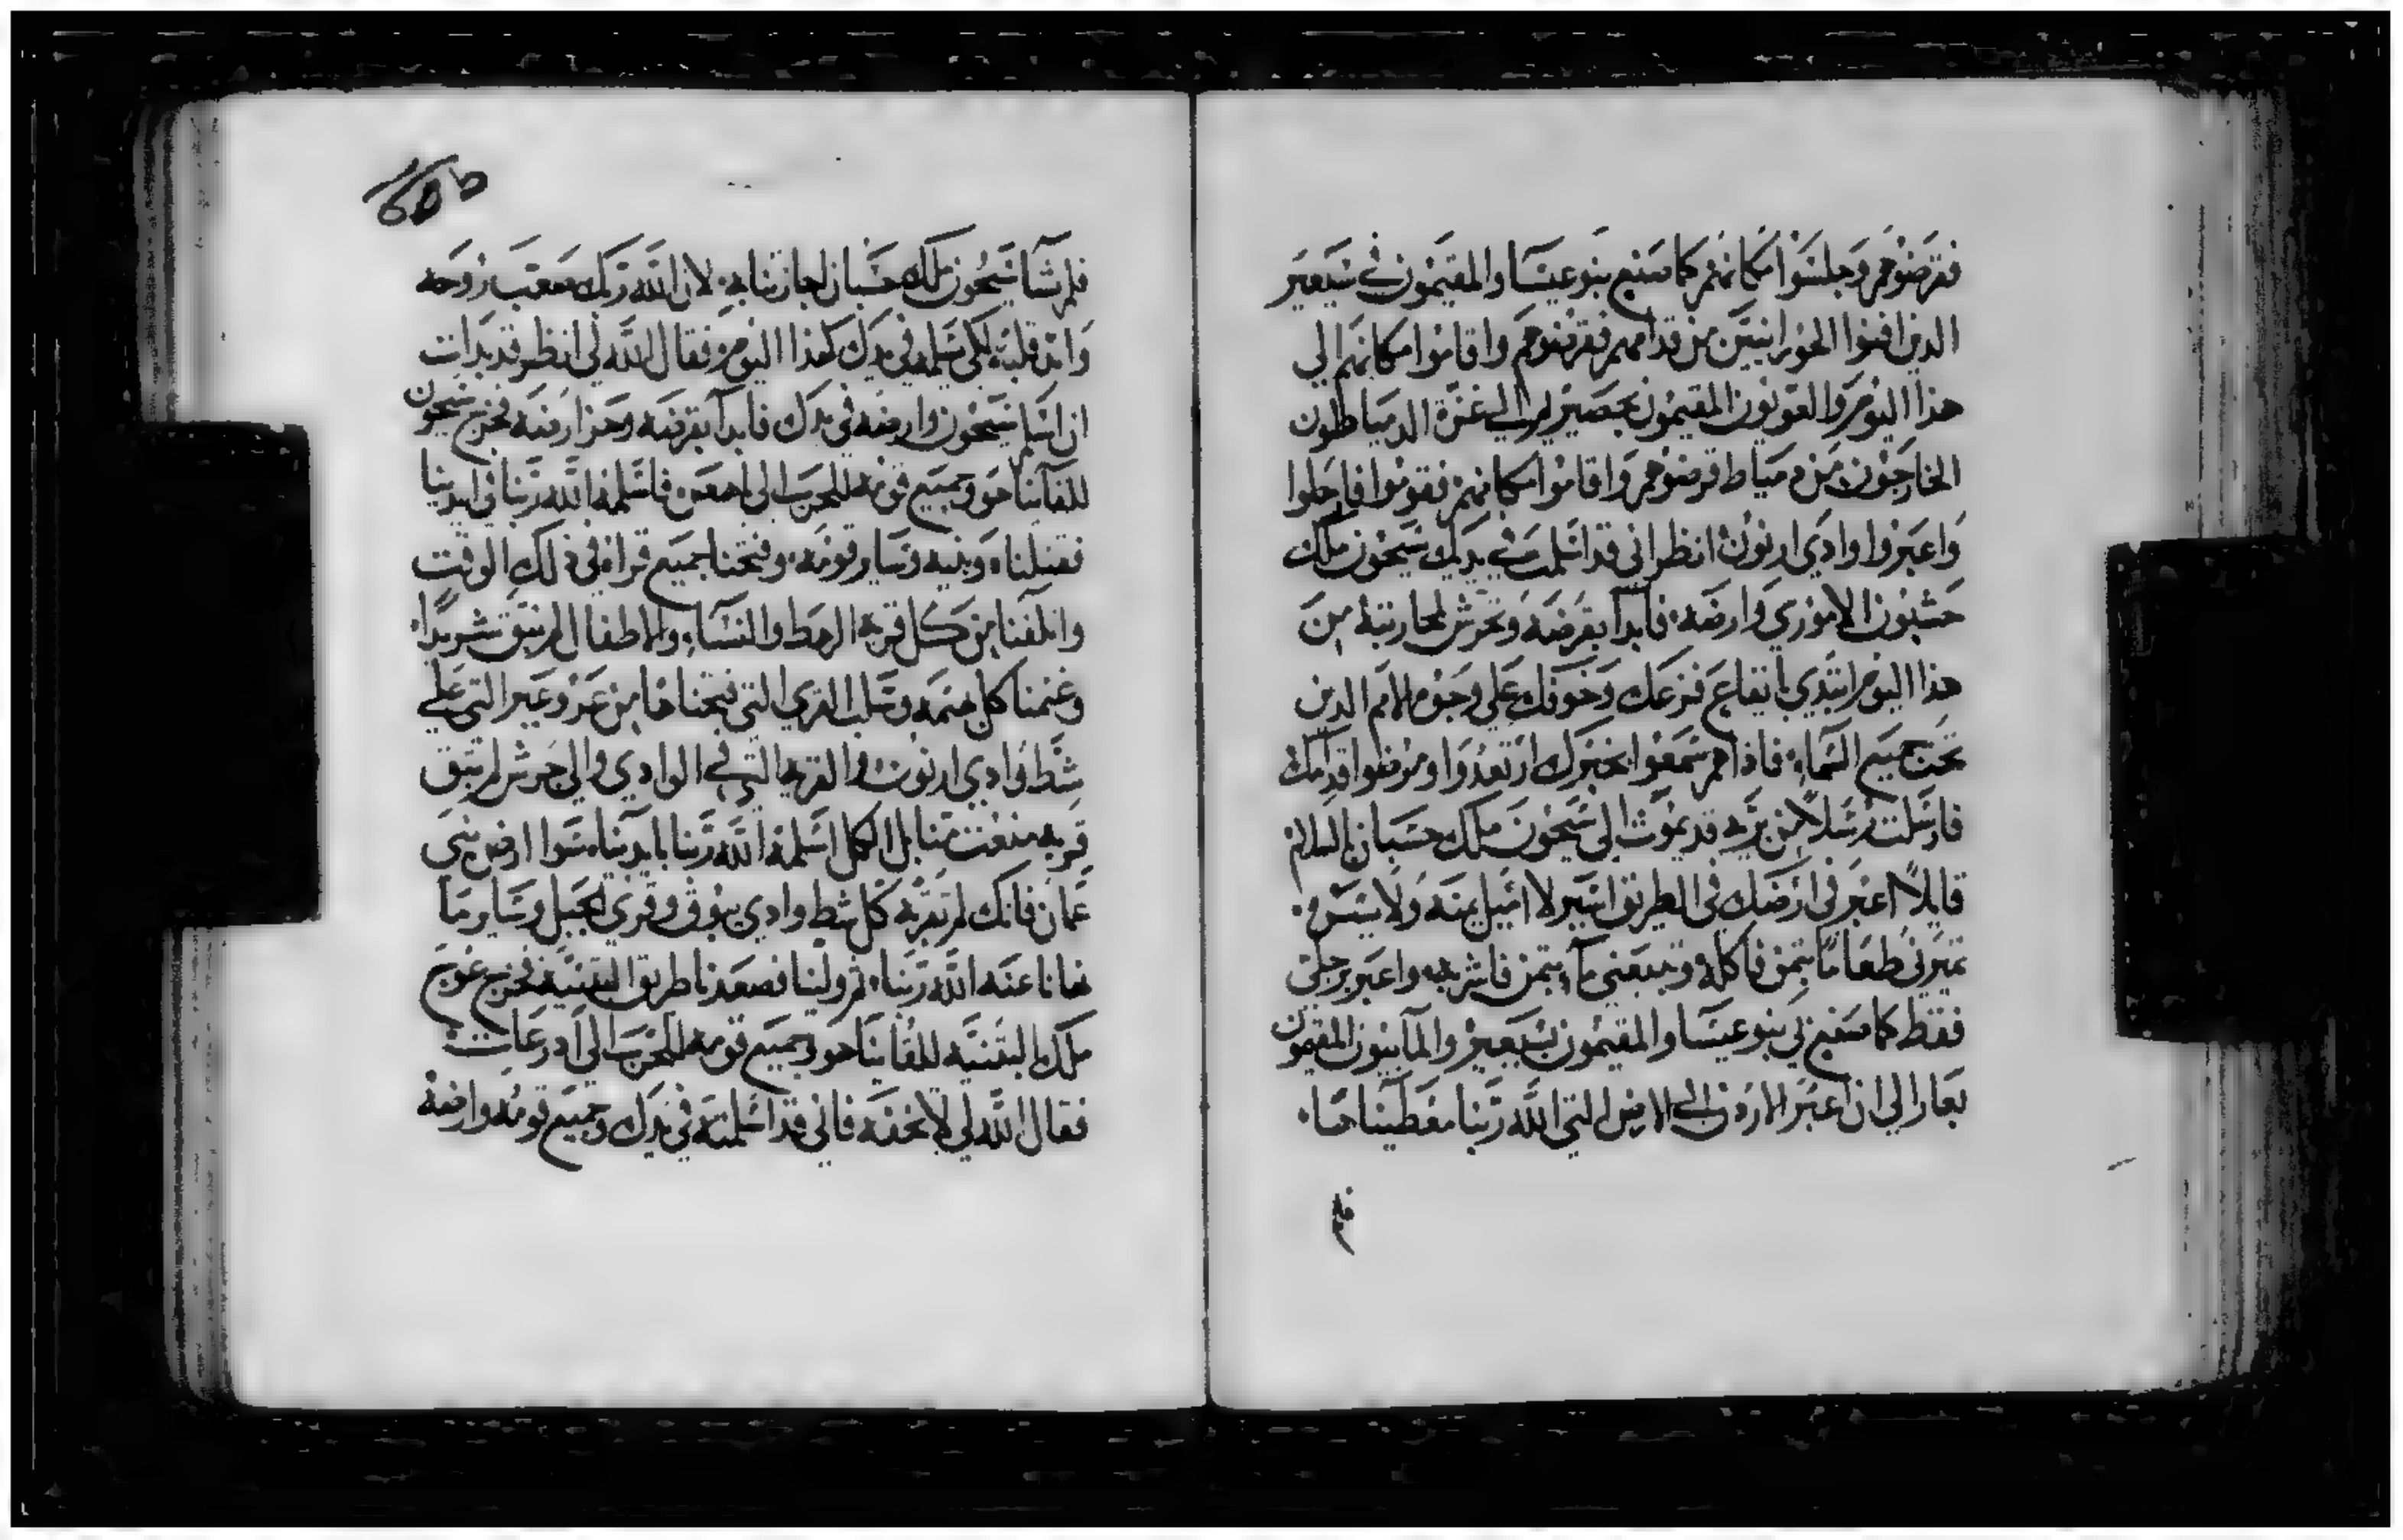 فقرضوهم وجلسوا مكانهم كما صنع بنو عيسا والمقيمون في سيعير
الذين افنوا الحورانيين من قدامهم فقرضوهم واقاموا مكانهم الي
هذا اليوم والعويون المقيمون بحصيريم الي غزة الدمياطون
الخارجون من دمياط قرضوهم واقاموا مكانهم فقوموا فارحلوا
واعبروا وادي ارنون انظر اني قد اسلمت في يدك سيحون ملك
حشبون الاموري وارضه فابدا بقرضه وتحرش لمحاربته من
هذا اليوم ابتدي بايقاع فزعك وخوفك علي وجوه الامم الذين
تحت جميع السماء فاذا هم سمعوا بخبرك ارتعدوا ومرضوا قدامك
فارسلت رسلا من بريه قديموث الي سيحون ملك حسبان بالسلام
قايلا اعبر في ارضك في الطريق اسير لا اميل يمنه ولا يسره
تميرني طعاما بثمن فاكله وتبيعني مآء بثمن فاشربه واعبر برجلي
فقط كما صنع لي بنو عيسا والمقيمون بسيعير والمآبيون المقيمون
بعار الي ان اعبر الاردن الي الارض التي الله ربنا معطيناها
فلم
فلم يشا سيحون ملك حسبان اجازتنا به لان الله ربك صعب روحه
وايد قلبه لكي يسلمه في يدك كهذا اليوم فقال الله لي انظر قد بدات
ان اسلم سيحون وارضه في يدك فابدآ بقرضه وحز ارضه فخرج سيحون
للقآينا هو وجميع قومه للحرب الي ياهص فاسلمه الله ربنا في ايدينا
فقتلناه وبنيه وساير قومه وفتحنا جميع قراه في ذلك الوقت
واتلفنا من كل قريه الرهط والنسآء والاطفال لم نبق شريدا
وغنمنا كل بهيمه وسلب القري التي فتحناها من عروعير التي علي
شط وادي ارنون والقريه التي في الوادي والي جرش لم تبق
قريه منعت منا بل الكل اسلمه الله ربنا بايدينا سوا ارض بني
عمان فانك لم تقربه كل شط وادي يبوق وقري الجبل وساير ما
نهانا عنه الله ربنا ثم ولينا فصعدنا طريق البثنيه فخرج عوج
ملك البثنيه للقآينا هو وجميع قومه للحرب الي ادرعات
فقال الله لي لا تخفه فاني قد اسلمته في يدك وجميع قومه وارضه